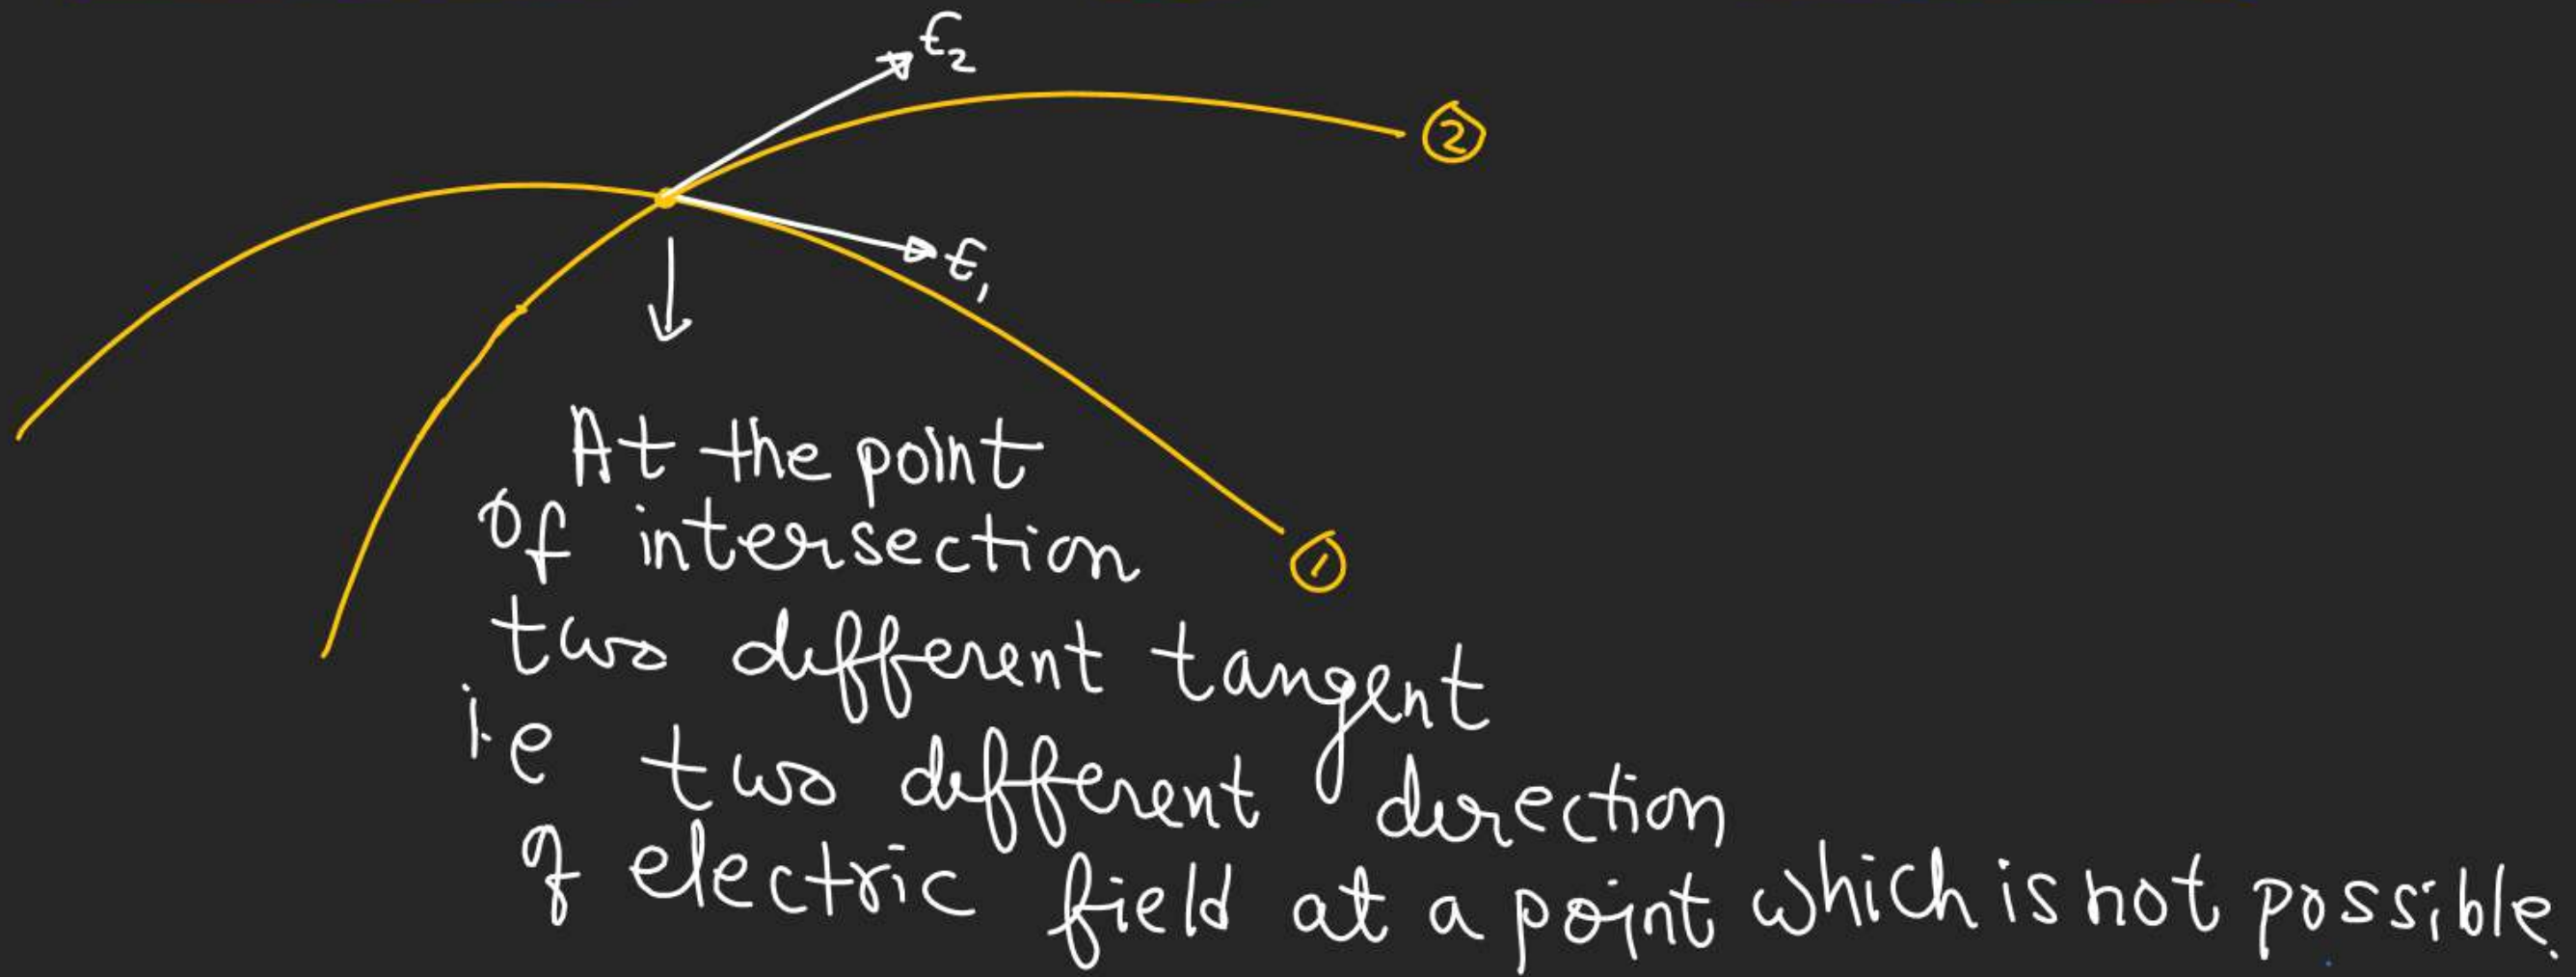 E₂
②
E₁
①
At the point
of intersection
two different tangent
i.e two different direction
of electric field at a point which is not possible.